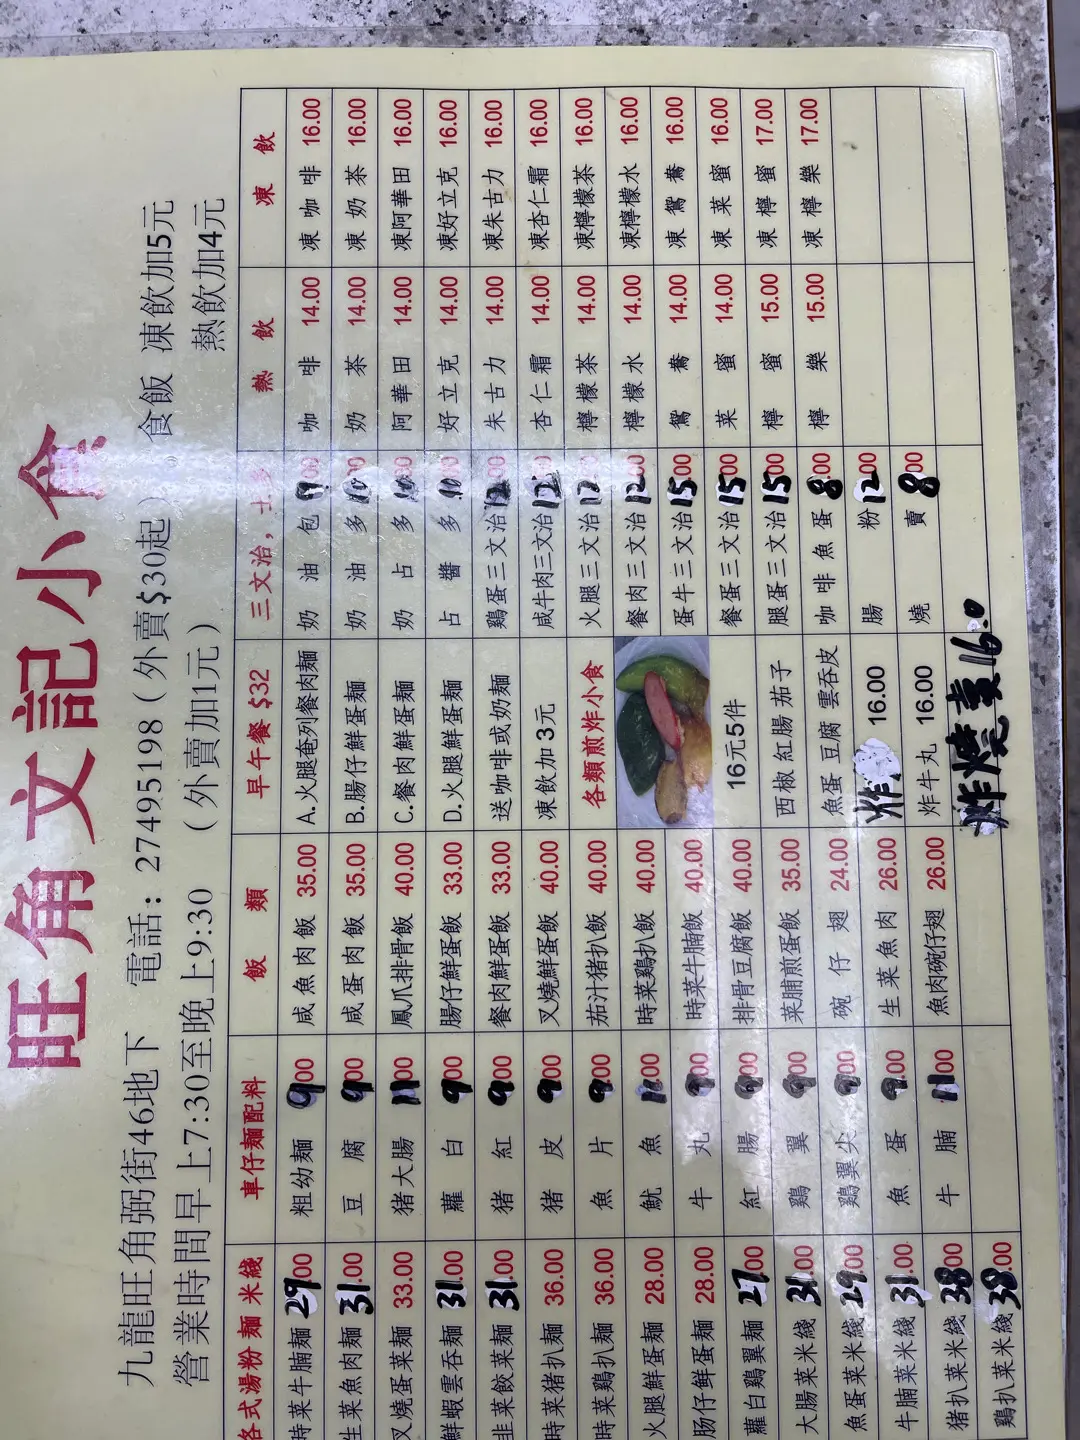 旺角文記小食
九龍旺角弼街46地下 電話：27495198（外賣$30起） 食飯 凍飲加5元
營業時間早上7:30至晚上9:30 （外賣加1元） 熱飲加4元
各式湯粉麵米綫 車仔麵配料 飯類 早午餐 $32 三文治，土多 熱飲 凍飲
時菜牛腩麵 29.00 粗幼麵 9.00 咸魚肉飯 35.00 A.火腿奄列餐肉麵 奶油包 9.00 咖啡 14.00 凍咖啡 16.00
生菜魚肉麵 31.00 豆腐 9.00 咸蛋肉飯 35.00 B.腸仔鮮蛋麵 奶油多 10.00 奶茶 14.00 凍奶茶 16.00
叉燒蛋菜麵 33.00 猪大腸 11.00 鳳爪排骨飯 40.00 C.餐肉鮮蛋麵 奶占多 10.00 阿華田 14.00 凍阿華田 16.00
鮮蝦雲吞麵 31.00 蘿白 9.00 腸仔鮮蛋飯 33.00 D.火腿鮮蛋麵 占醬多 10.00 好立克 14.00 凍好立克 16.00
韭菜餃菜麵 31.00 猪紅 9.00 餐肉鮮蛋飯 33.00 送咖啡或奶麵 鷄蛋三文治 12.00 朱古力 14.00 凍朱古力 16.00
時菜猪扒麵 36.00 猪皮 9.00 叉燒鮮蛋飯 40.00 凍飲加 3元 咸牛肉三文治 12.00 杏仁霜 14.00 凍杏仁霜 16.00
時菜鷄扒麵 36.00 魚片 9.00 茄汁猪扒飯 40.00 各類煎炸小食 火腿三文治 12.00 檸檬茶 14.00 凍檸檬茶 16.00
火腿鮮蛋麵 28.00 魷魚 11.00 時菜鷄扒飯 40.00 餐肉三文治 12.00 檸檬水 14.00 凍檸檬水 16.00
肠仔鲜蛋麵 28.00 牛丸 9.00 時菜牛腩飯 40.00 蛋牛三文治 15.00 鴛鴦 14.00 凍鴛鴦 16.00
蘿白鷄翼麵 27.00 紅腸 9.00 排骨豆腐飯 40.00 16元5件 餐蛋三文治 15.00 菜蜜 14.00 凍菜蜜 16.00
大腸菜米綫 31.00 鷄翼 9.00 菜脯煎蛋飯 35.00 西椒 紅腸 茄子 腿蛋三文治 15.00 檸蜜 15.00 凍檸蜜 17.00
魚蛋菜米綫 29.00 鷄翼尖 9.00 碗仔翅 24.00 魚蛋 豆腐 雲吞皮 咖啡魚蛋 8.00 檸樂 15.00 凍檸樂 17.00
牛腩菜米綫 31.00 魚蛋 9.00 生菜魚肉 26.00 炸 16.00 腸粉 12.00
猪扒菜米綫 38.00 牛腩 11.00 魚肉碗仔翅 26.00 炸牛丸 16.00 燒賣 8.00
鷄扒菜米綫 38.00 炸燒賣16.0